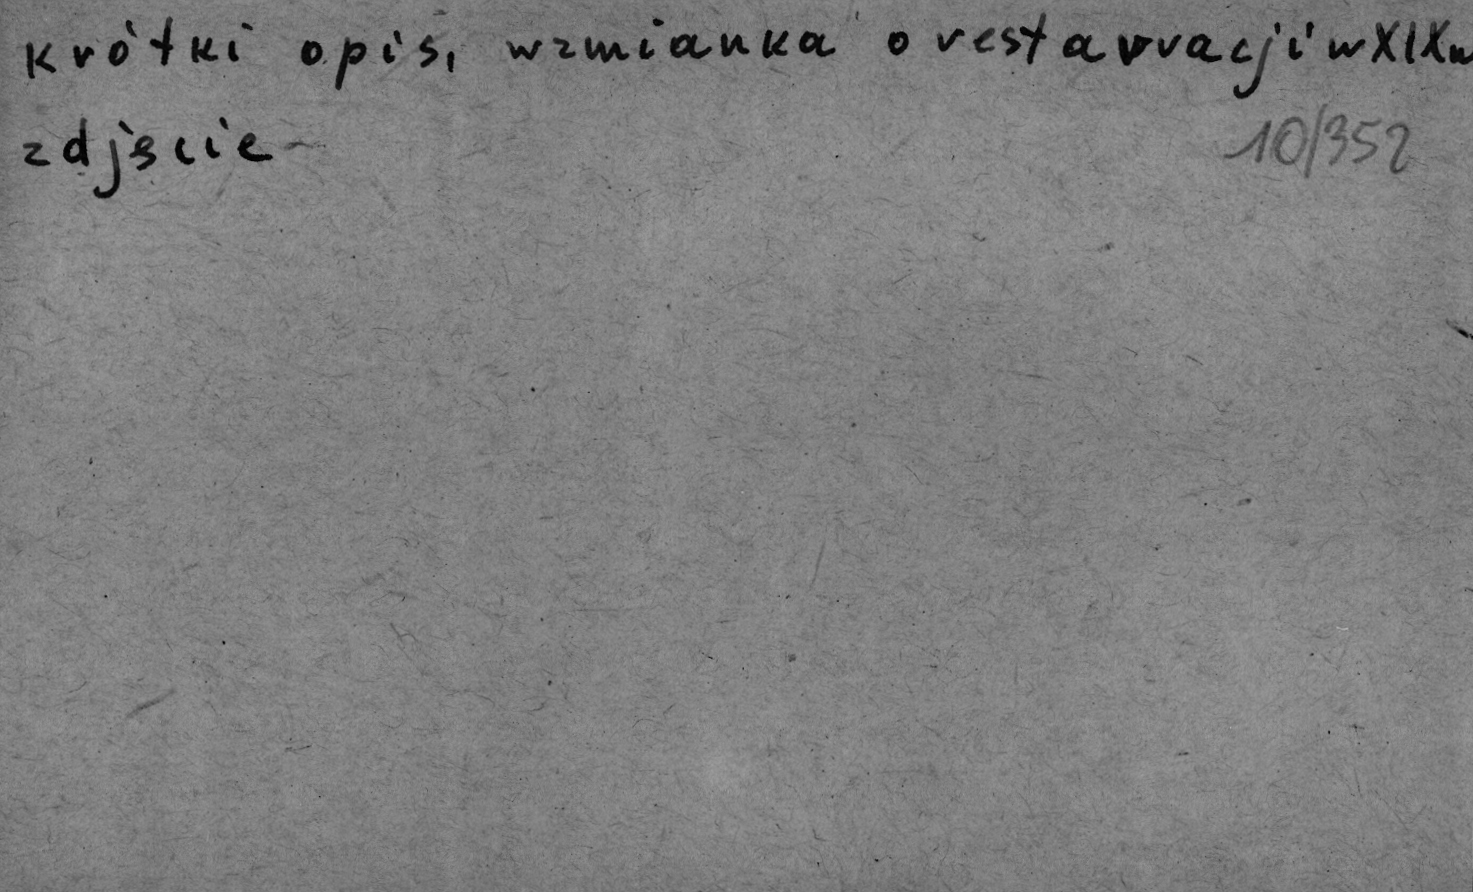 krótki opis, wzmianka o restavracji w XIXw
zdjęcie
10/352